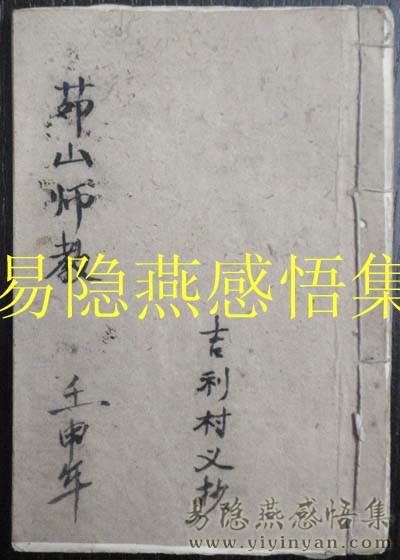 茆山师教
壬申年
吉利村义抄
易隐燕感悟集
易隐燕感悟集
www.yiyinyan.com